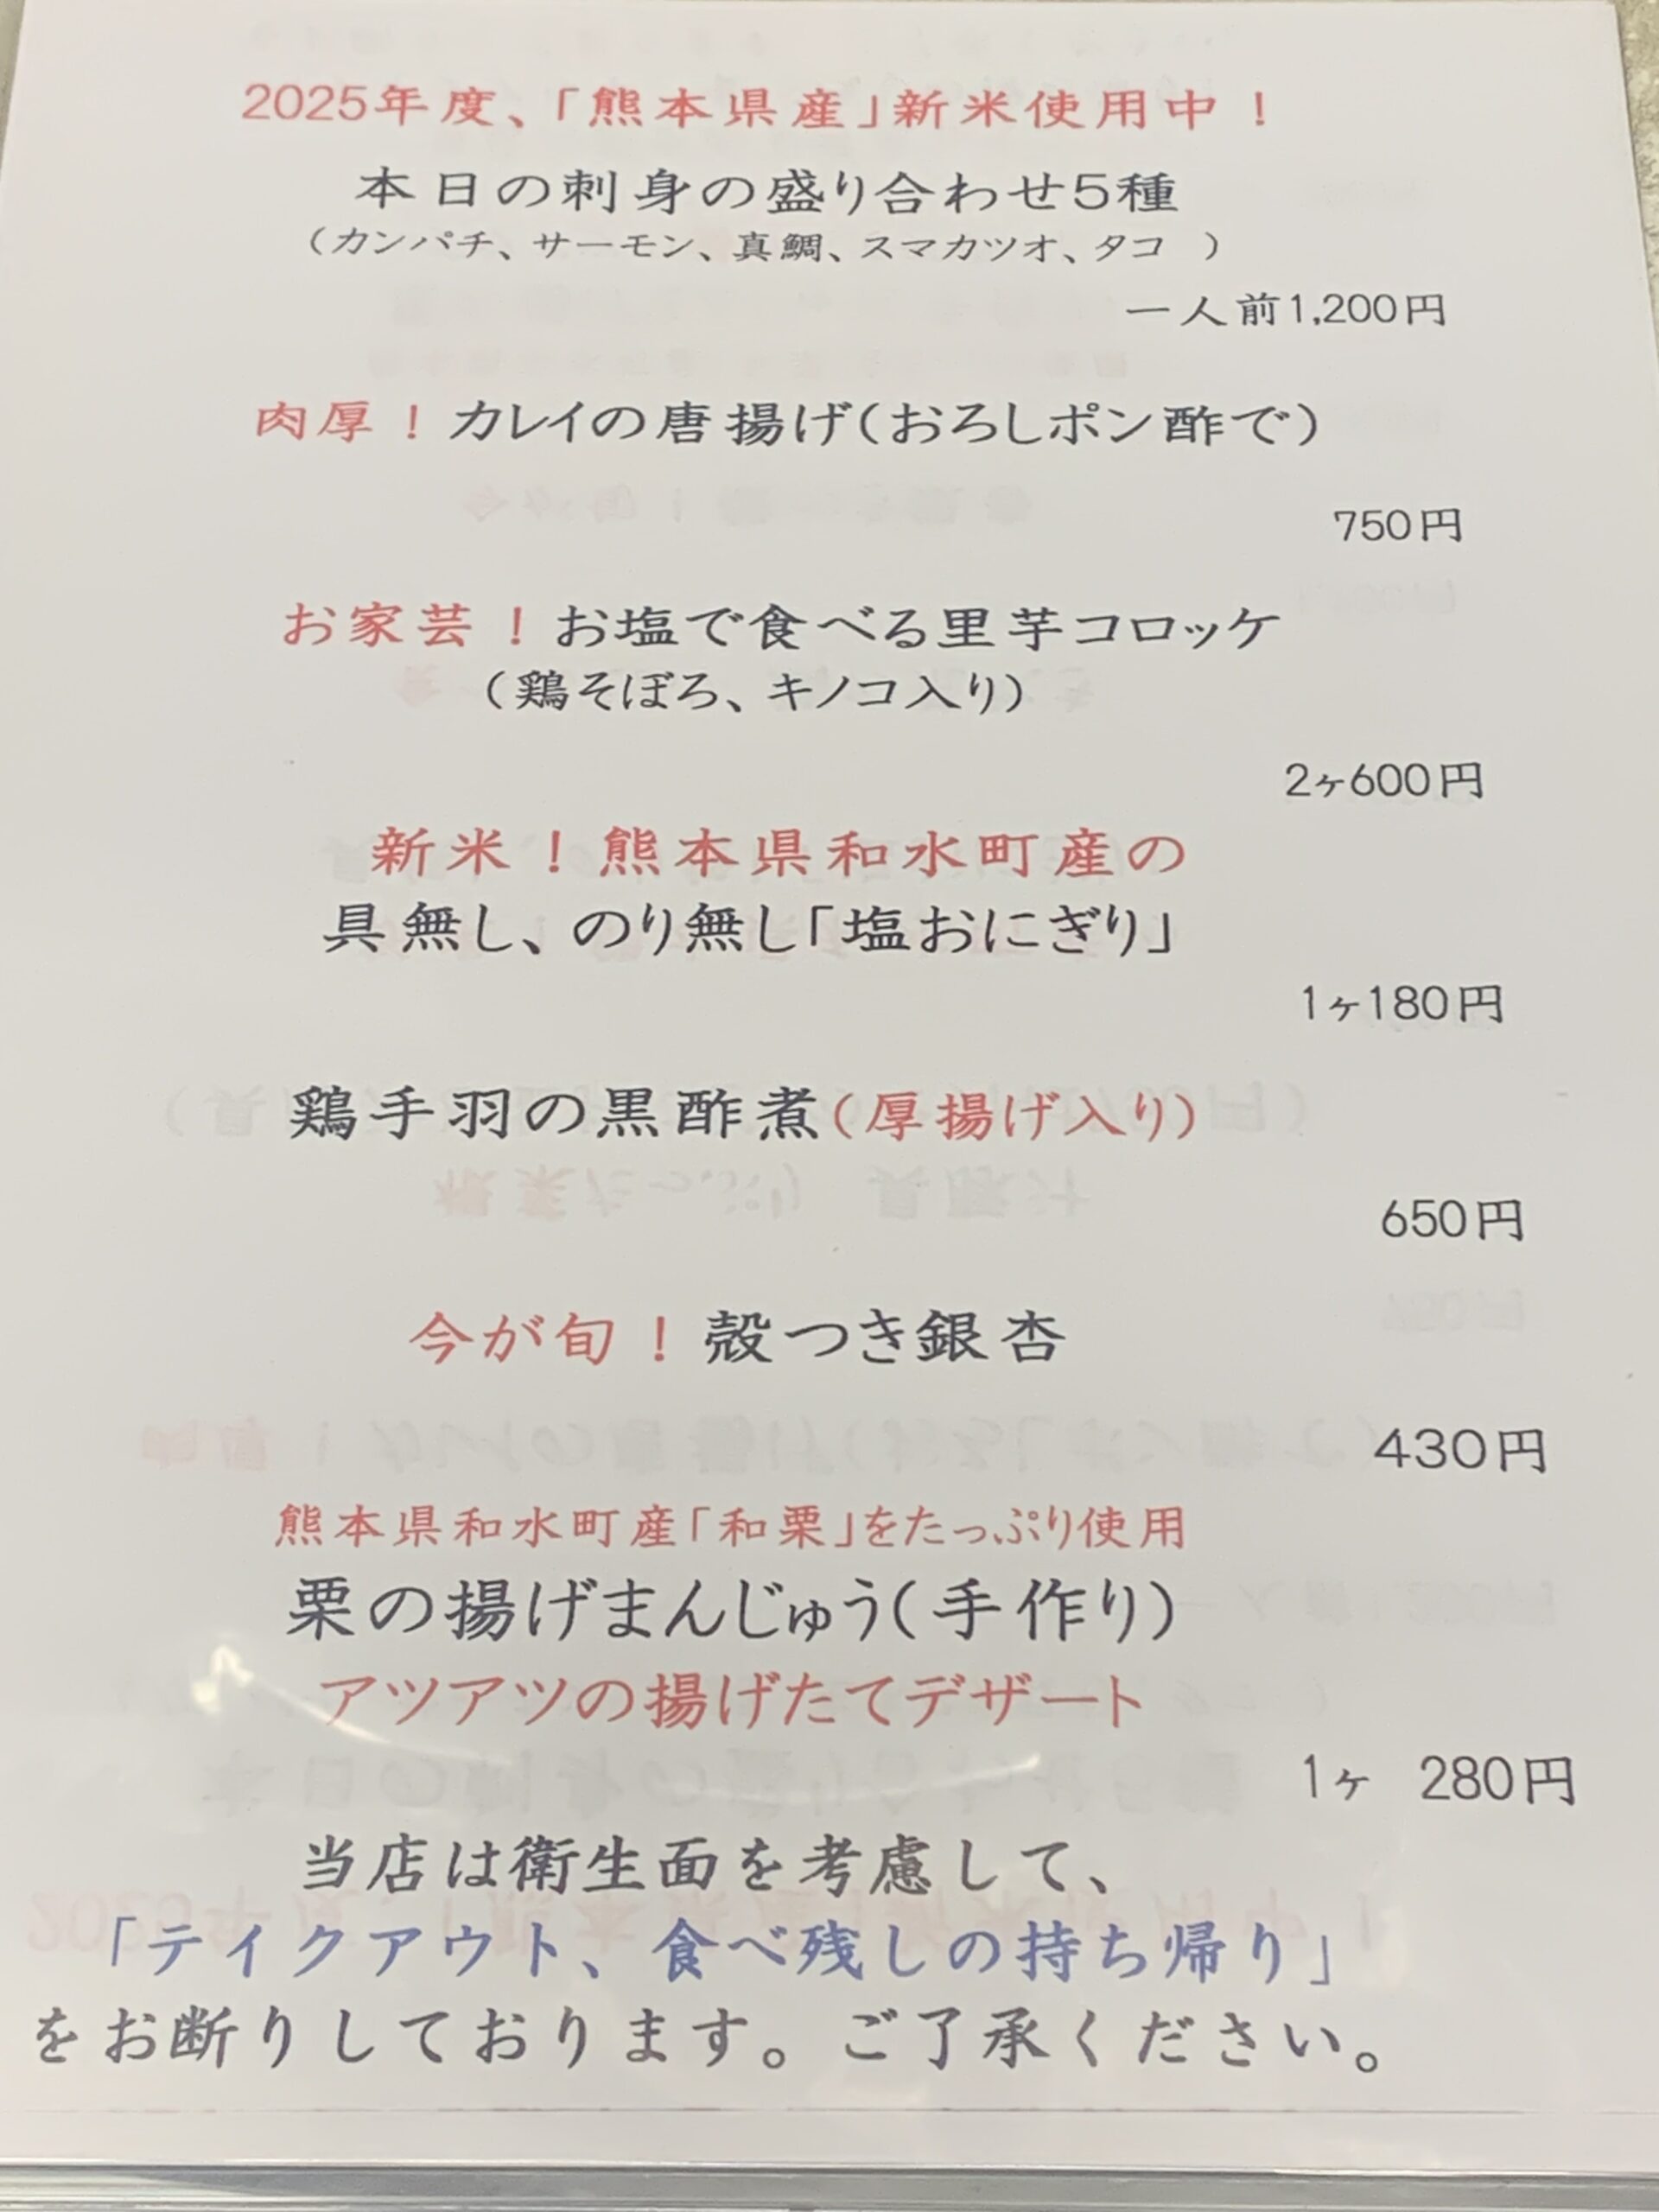 2025年度、「熊本県産」新米使用中！
本日の刺身の盛り合わせ5種
（カンパチ、サーモン、真鯛、スマカツオ、タコ　）
一人前1,200円
肉厚！カレイの唐揚げ（おろしポン酢で）
750円
お家芸！お塩で食べる里芋コロッケ
（鶏そぼろ、キノコ入り）
2ヶ600円
新米！熊本県和水町産の
具無し、のり無し「塩おにぎり」
1ヶ180円
鶏手羽の黒酢煮（厚揚げ入り）
650円
今が旬！殻つき銀杏
430円
熊本県和水町産「和栗」をたっぷり使用
栗の揚げまんじゅう（手作り）
アツアツの揚げたてデザート
1ヶ　280円
当店は衛生面を考慮して、
「テイクアウト、食べ残しの持ち帰り」
をお断りしております。ご了承ください。